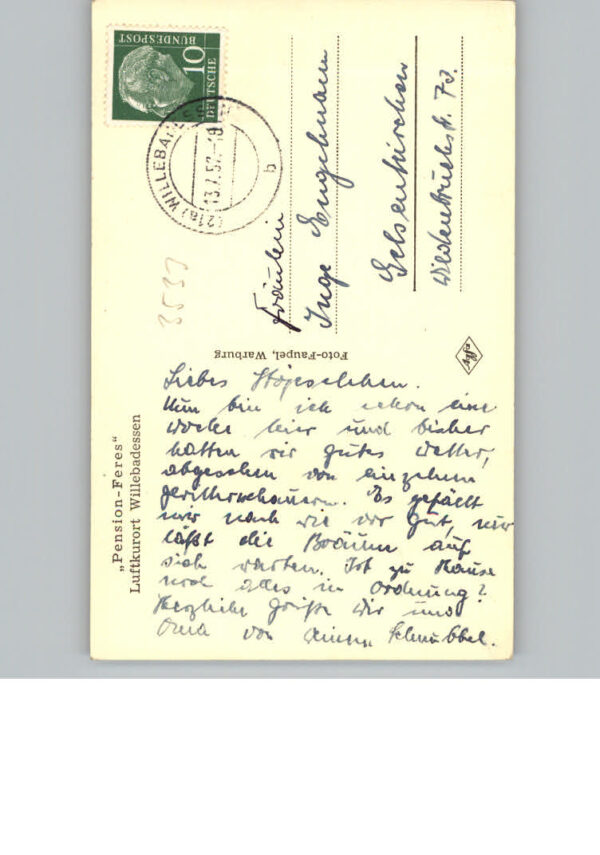 „Pension-Feres“
Luftkurort Willebadessen
Liebes
Nun bin ich schon eine
Woche hier und bisher
hatten wir gutes Wetter,
abgesehen von einzelnen
Gewitterschauern. Es gefällt
mir nach wie vor gut, nur
läßt die Bräune auf
sich warten. Ist zu Hause
wol alles in Ordnung?
Herzliche Grüße Dir und
Oma von Deinem Schnubbel.
Foto-Faupel, Warburg
Agfa
DEUTSCHE
BUNDESPOST
10
(21a) WILLEBADESSEN
13.7.57.-18
b
3533
Fräulein
Inge Engelmann
Gelsenkirchen
Wildenbruchstr. 73.